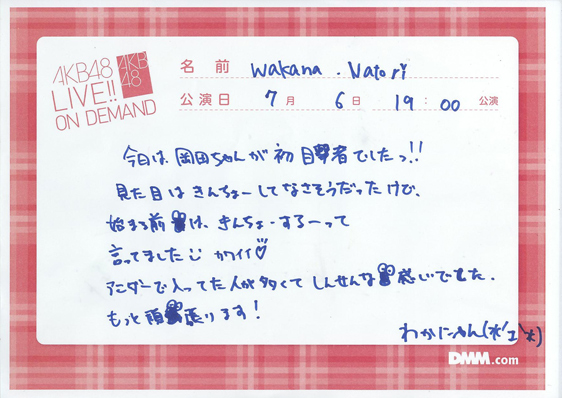 AKB48
LIVE!!
ON DEMAND
AKB
48
名前 Wakana . Natori
公演日 7月 6日 19:00 公演
今日は、岡田ちゃんが初日替者でしたっ!!
見た目はきんちょーしてなさそうだったけど、
始まる前は、きんちょーするーって
言ってました カワイイ♡
アンダーで入ってた人が多くてしんせんな感じでした.
もっと頑張ります!
わかにゃん(*'ェ'*)
DMM.com